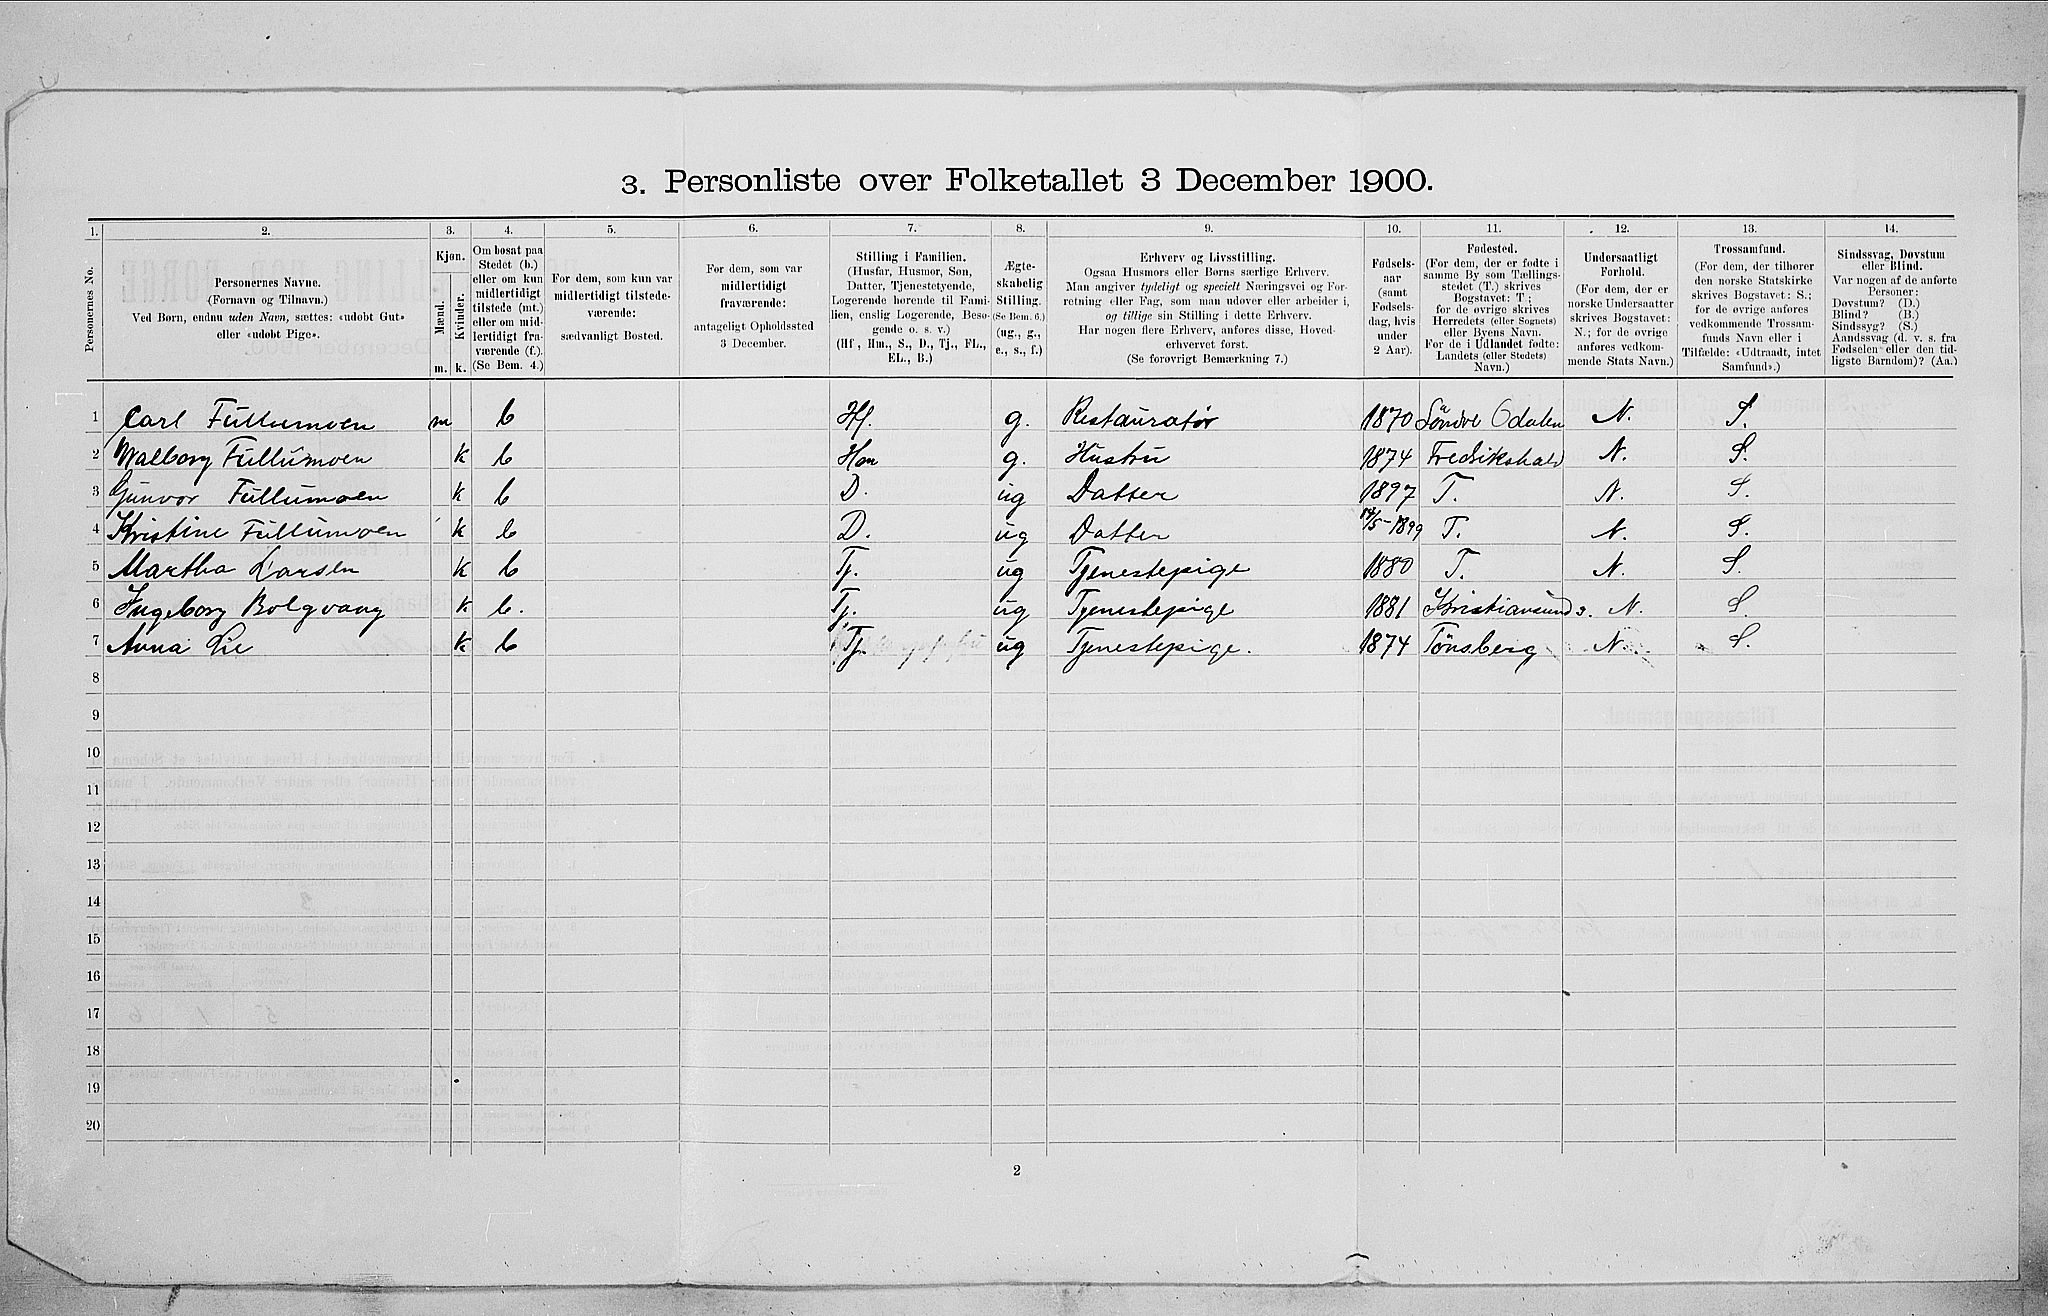 3. Personliste over Folketallet 3 December 1900.
1. 2. 3. 4. 5. 6. 7. 8. 9. 10. 11. 12. 13. 14.
Personernes No.
Personernes Navne.
(Fornavn og Tilnavn.)
Ved Børn, endnu uden Navn, sættes: «udøbt Gut»
eller «udøbt Pige».
Kjøn.
Mænd.
Kvinder.
m. k.
Om bosat paa
Stedet (b.)
eller om kun
midlertidigt
tilstede (mt.)
eller om mid-
lertidigt fra-
værende (f.).
(Se Bem. 4.)
For dem, som kun var
midlertidigt tilstede-
værende:
sædvanligt Bosted.
For dem, som var
midlertidigt
fraværende:
antageligt Opholdssted
3 December.
Stilling i Familien.
(Husfar, Husmor, Søn,
Datter, Tjenestetyende,
Logerende hørende til Fami-
lien, enslig Logerende, Besø-
gende o. s. v.)
(Hf., Hm., S., D., Tj., FL.,
EL., B.)
Ægte-
skabelig
Stilling.
(Se Bem. 6.)
(ug., g.,
e., s., f.)
Erhverv og Livsstilling.
Ogsaa Husmors eller Børns særlige Erhverv.
Man angiver tydeligt og specielt Næringsvei og For-
retning eller Fag, som man udøver eller arbeider i,
og tillige sin Stilling i dette Erhverv.
Har nogen flere Erhverv, anføres disse, Hoved-
erhvervet først.
(Se forøvrigt Bemærkning 7.)
Fødsels-
aar
(samt
Fødsels-
dag, hvis
under
2 Aar).
Fødested.
(For dem, der er fødte i
samme By som Tællings-
stedet (T.) skrives
Bogstavet: T;
for de øvrige skrives
Herredets (eller Sognets)
eller Byens Navn.
For de i Udlandet fødte:
Landets (eller Stedets)
Navn.)
Undersaatligt
Forhold.
(For dem, der er
norske Undersaatter
skrives Bogstavet:
N.; for de øvrige
anføres vedkom-
mende Stats Navn.)
Trossamfund.
(For dem, der tilhører
den norske Statskirke
skrives Bogstavet: S.;
for de øvrige anføres
vedkommende Trossam-
funds Navn eller i
Tilfælde: «Udtraadt, intet
Samfund».)
Sindssvag, Døvstum
eller Blind.
Var nogen af de anførte
Personer:
Døvstum? (D.)
Blind? (B.)
Sindssyg? (S.)
Aandssvag (d. v. s. fra
Fødselen eller den tid-
ligste Barndom)? (Aa.)
1 Carl Fullumoen m b Hf. g. Restauratør 1870 Søndre Odalen N. S.
2 Walborg Fullumoen k b Hm g. Hustru 1874 Fredrikshald N. S.
3 Gunvor Fullumoen k b D. ug Datter 1897 T. N. S.
4 Kristine Fullumoen k b D. ug Datter 14/5-1899 T. N. S.
5 Martha Larsen k b Tj. ug Tjenestepige 1880 T. N. S.
6 Ingeborg Bolgvang k b. Tj. ug Tjenestepige 1881 Kristiansund N. S.
7 Anna Lie k b Tj. ug Tjenestepige. 1874 Tønsberg N. S.
8
9
10
11
12
13
14
15
16
17
18
19
20
2